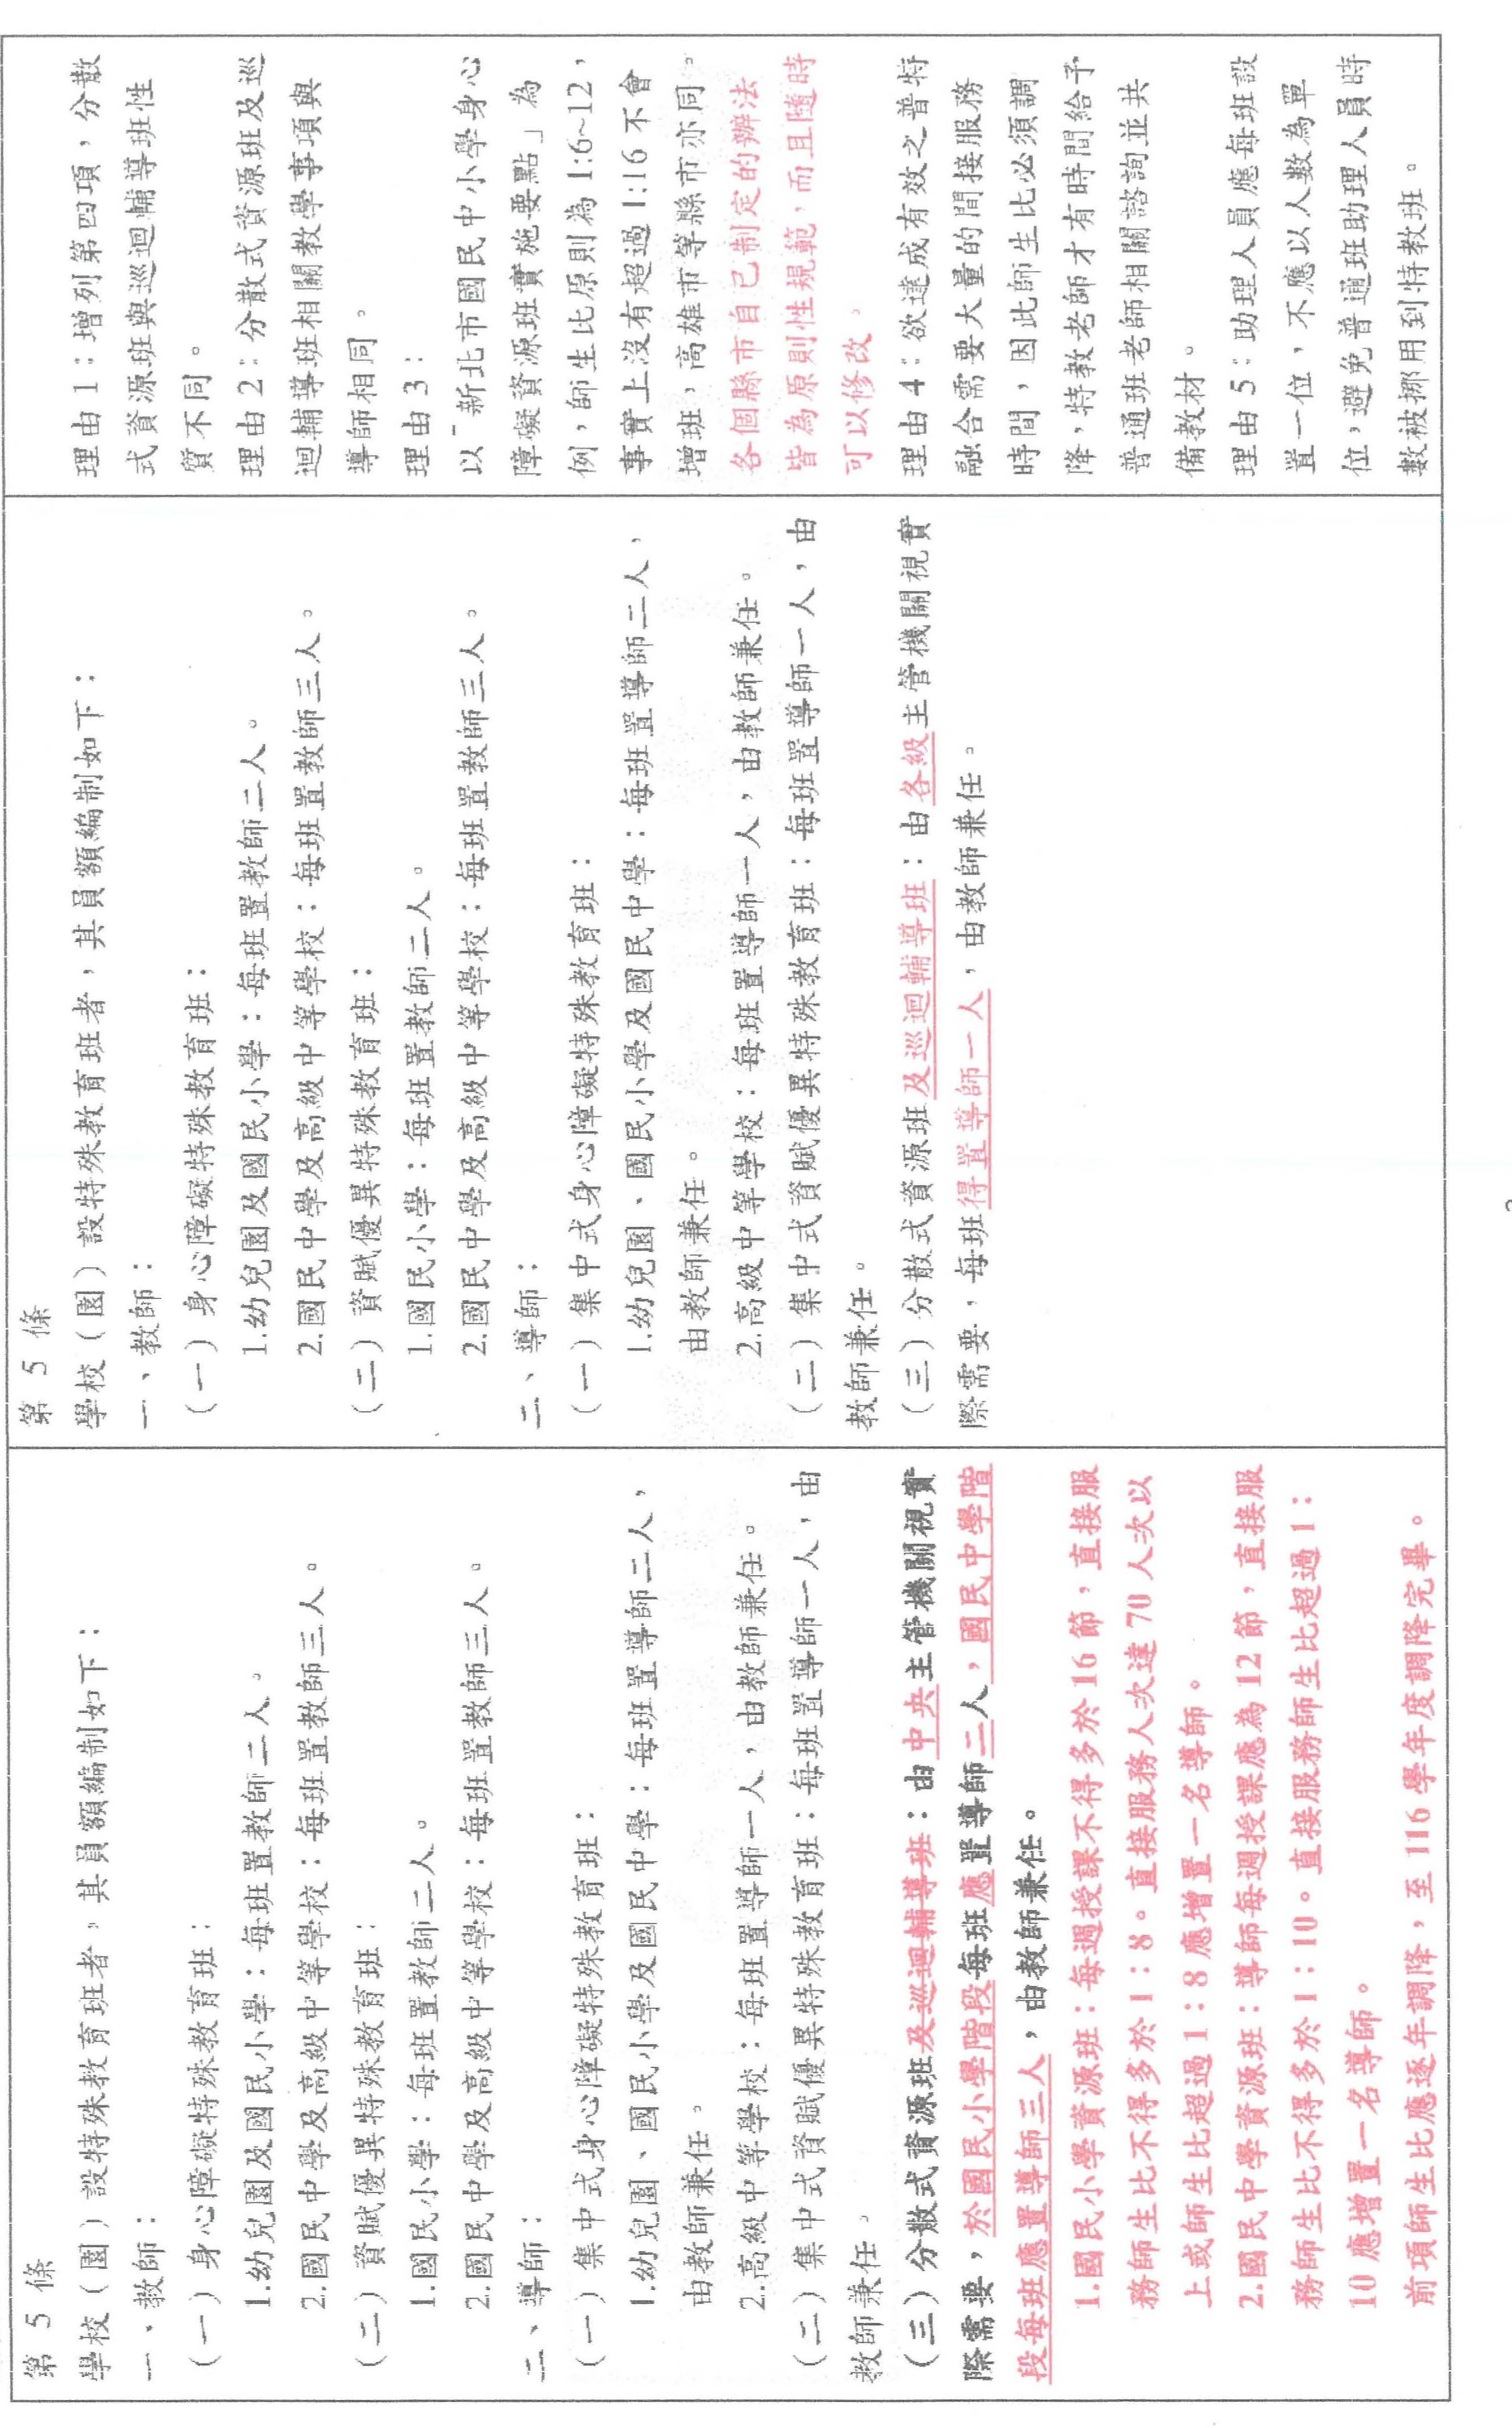 第 5 條
學校（園）設特殊教育班者，其員額編制如下：
一、教師：
（一）身心障礙特殊教育班：
1.幼兒園及國民小學：每班置教師二人。
2.國民中學及高級中等學校：每班置教師三人。
（二）資賦優異特殊教育班：
1.國民小學：每班置教師二人。
2.國民中學及高級中等學校：每班置教師三人。
二、導師：
（一）集中式身心障礙特殊教育班：
1.幼兒園、國民小學及國民中學：每班置導師二人，
由教師兼任。
2.高級中等學校：每班置導師一人，由教師兼任。
（二）集中式資賦優異特殊教育班：每班置導師一人，由
教師兼任。
（三）分散式資源班及巡迴輔導班：由中央主管機關視實
際需要，於國民小學階段每班應置導師二人，國民中學階
段每班應置導師三人，由教師兼任。
1.國民小學資源班：每週授課不得多於 16 節，直接服
務師生比不得多於 1：8。直接服務人次達 70 人次以
上或師生比超過 1：8 應增置一名導師。
2.國民中學資源班：導師每週授課應為 12 節，直接服
務師生比不得多於 1：10。直接服務師生比超過 1：
10 應增置一名導師。
前項師生比應逐年調降，至 116 學年度調降完畢。
第 5 條
學校（園）設特殊教育班者，其員額編制如下：
一、教師：
（一）身心障礙特殊教育班：
1.幼兒園及國民小學：每班置教師二人。
2.國民中學及高級中等學校：每班置教師三人。
（二）資賦優異特殊教育班：
1.國民小學：每班置教師二人。
2.國民中學及高級中等學校：每班置教師三人。
二、導師：
（一）集中式身心障礙特殊教育班：
1.幼兒園、國民小學及國民中學：每班置導師二人，
由教師兼任。
2.高級中等學校：每班置導師一人，由教師兼任。
（二）集中式資賦優異特殊教育班：每班置導師一人，由
教師兼任。
（三）分散式資源班及巡迴輔導班：由各級主管機關視實
際需要，每班得置導師一人，由教師兼任。
理由 1：增列第四項，分散
式資源班與巡迴輔導班性
質不同。
理由 2：分散式資源班及巡
迴輔導班相關教學事項與
導師相同。
理由 3：
以「新北市國民中小學身心
障礙資源班實施要點」為
例，師生比原則為 1:6~12，
事實上沒有超過 1:16 不會
增班，高雄市等縣市亦同。
各個縣市自己制定的辦法
皆為原則性規範，而且隨時
可以修改。
理由 4：欲達成有效之普特
融合需要大量的間接服務
時間，因此師生比必須調
降，特教老師才有時間給予
普通班老師相關諮詢並共
備教材。
理由 5：助理人員應每班設
置一位，不應以人數為單
位，避免普通班助理人員時
數被挪用到特教班。